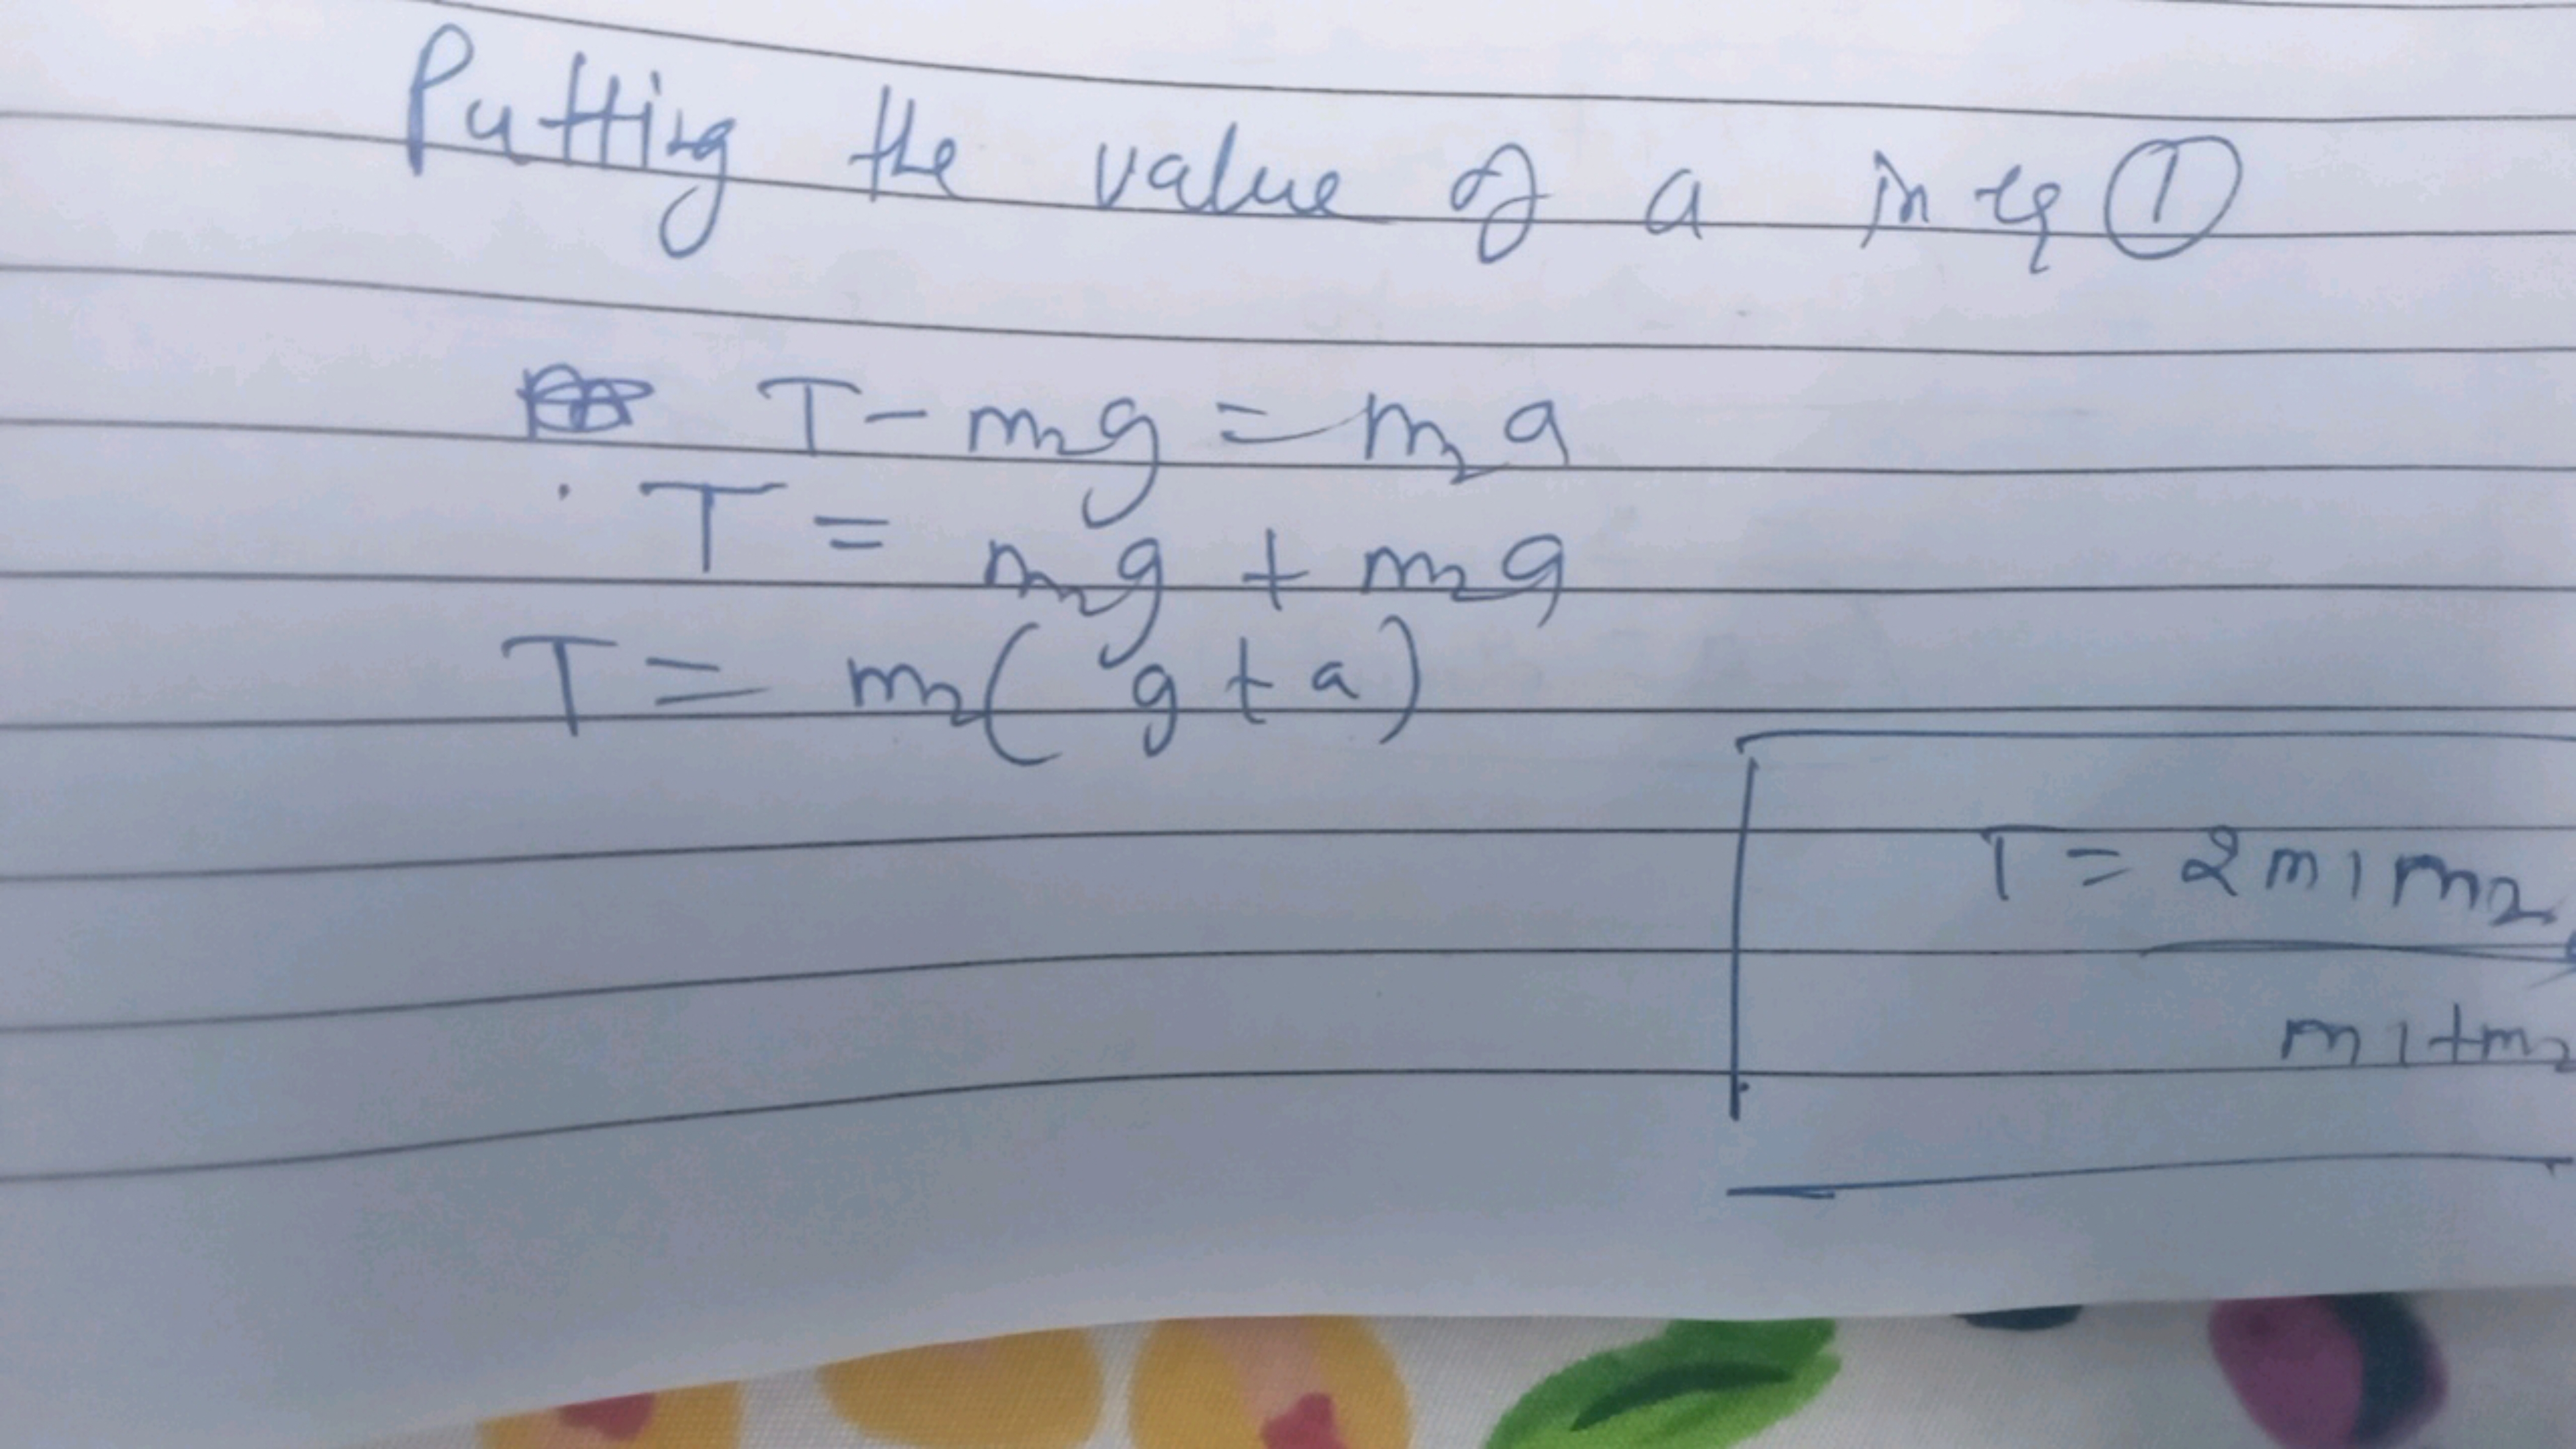 Putting the value of a in eq ①
T - m2g = m2a
T = m2g + m2a
T = m2( g + a)
T = 2 m1 m2
m1+m2